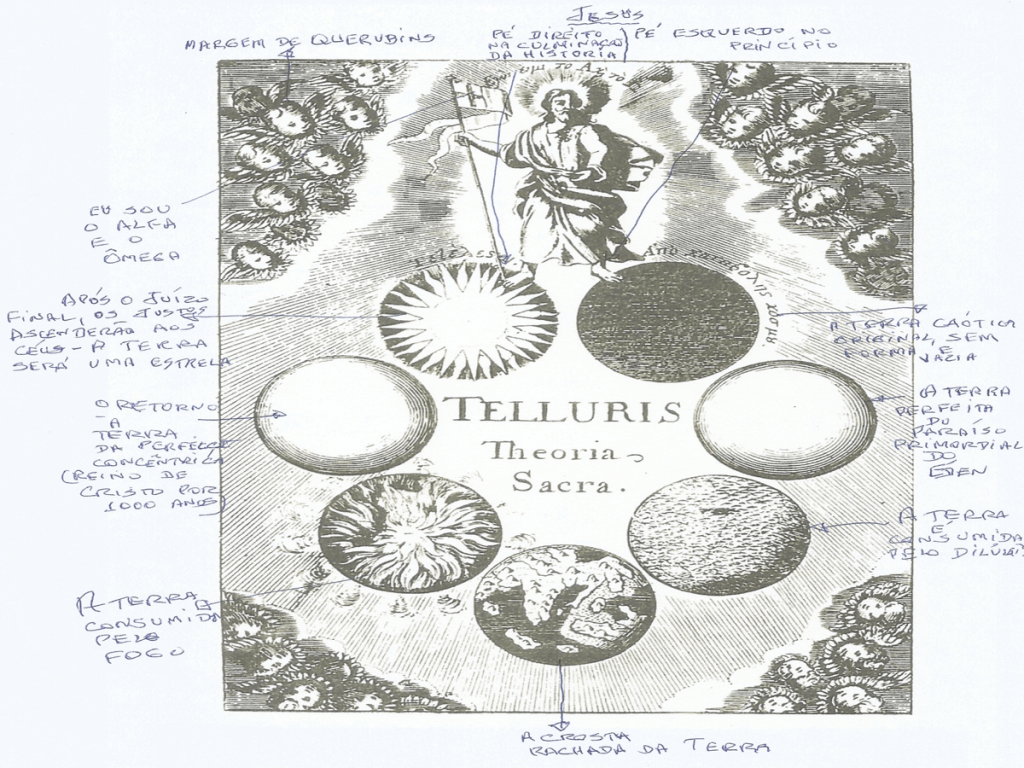 JESUS
MARGEM DE QUERUBINS
PÉ DIREITO
NA CULMINAÇÃO
DA HISTÓRIA
PÉ ESQUERDO NO
PRINCÍPIO
EU SOU
O ALFA
E O
ÔMEGA
APÓS O JUÍZO
FINAL, OS JUSTOS
ASCENDERÃO AOS
CÉUS - A TERRA
SERÁ UMA ESTRELA
A TERRA CAÓTICA
ORIGINAL, SEM
FORMA E
VAZIA
TELLURIS
Theoria
Sacra.
O RETORNO
- A
TERRA
DA PERFEIÇÃO
CONCÊNTRICA
(REINO DE
CRISTO POR
1000 ANOS)
A TERRA
PERFEITA
DO
PARAÍSO
PRIMORDIAL
DO
ÉDEN
A TERRA
É
CONSUMIDA
PELO DILÚVIO
A TERRA É
CONSUMIDA
PELO
FOGO
A CROSTA
RACHADA DA TERRA